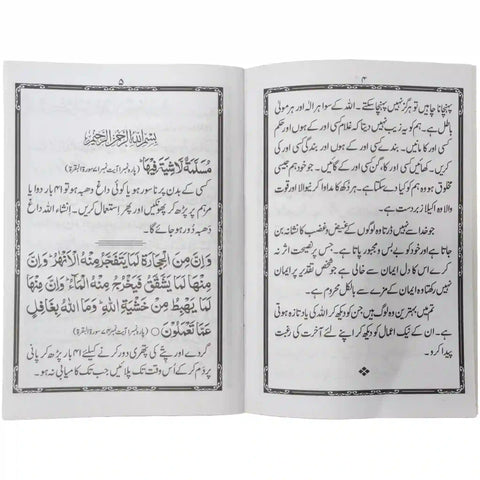 ۴
پہنچانا چاہیں تو ہرگز نہیں پہنچا سکتے۔ اللہ کے سوا ہر الٰہ اور ہر مولیٰ
باطل ہے۔ ہم کو یہ زیب نہیں دیتا کہ غلام کسی اور کے ہوں اور حکم
کسی اور کا مانیں۔ بندے کسی اور کے ہوں اور بندگی کسی اور کی
کریں۔ کھائیں کسی اور کا، گُن کسی اور کے گائیں۔ جو خود ہم جیسی
مخلوق ہو وہ ہم کو کیا دے سکتا ہے۔ ہر دُکھ کا مداوا کرنیوالا اور قوت
والا وہ اکیلا زبردست ہے۔
جو خدا سے نہیں ڈرتا وہ لوگوں کے غیض و غضب کا نشانہ بن
جاتا ہے اور خود کو بے بس و مجبور پاتا ہے۔ جس پر نصیحت اثر نہ
کرے اس کا دل ایمان سے خالی ہے جو شخص تقدیر پر ایمان
نہیں رکھتا وہ ایمان کے مزے سے بالکل محروم ہے۔
تم میں بہترین وہ لوگ ہیں جن کو دیکھ کر اللہ کی یاد تازہ ہوتی
ہے۔ ان کے نیک اعمال کو دیکھ کر اپنے لئے آخرت کی رغبت
پیدا کرو۔
۵
بِسْمِ اللهِ الرَّحْمٰنِ الرَّحِيْمِ
مُسَلَّمَةٌ لَّاشِيَةَ فِيْهَا ؕ (پارہ نمبر ۱ آیت نمبر ۷۱ سورۃ البقرۃ)
کسی کے بدن پر ناسور ہو یا کوئی داغ دھبہ ہو تو ۴۱ بار دوا یا
مرہم پر پڑھ کر پھونکیں اور پھر استعمال کریں۔ انشاء اللہ داغ
دھبہ دور ہو جائے گا۔
وَاِنَّ مِنَ الْحِجَارَةِ لَمَا يَتَفَجَّرُ مِنْهُ الْاَنْهٰرُ ؕ وَاِنَّ
مِنْهَا لَمَا يَشَّقَّقُ فَيَخْرُجُ مِنْهُ الْمَآءُ ؕ وَاِنَّ مِنْهَا
لَمَا يَهْبِطُ مِنْ خَشْيَةِ اللهِ ؕ وَمَا اللهُ بِغَافِلٍ
عَمَّا تَعْمَلُوْنَ ○ (پارہ نمبر ۱ آیت نمبر ۷۴ سورۃ البقرۃ)
گردے اور پتّے کی پتھری دور کرنے کیلئے ۴۱ بار پڑھ کر پانی
پر دَم کر کے اُس وقت تک پلائیں جب تک کامیابی نہ ہو۔